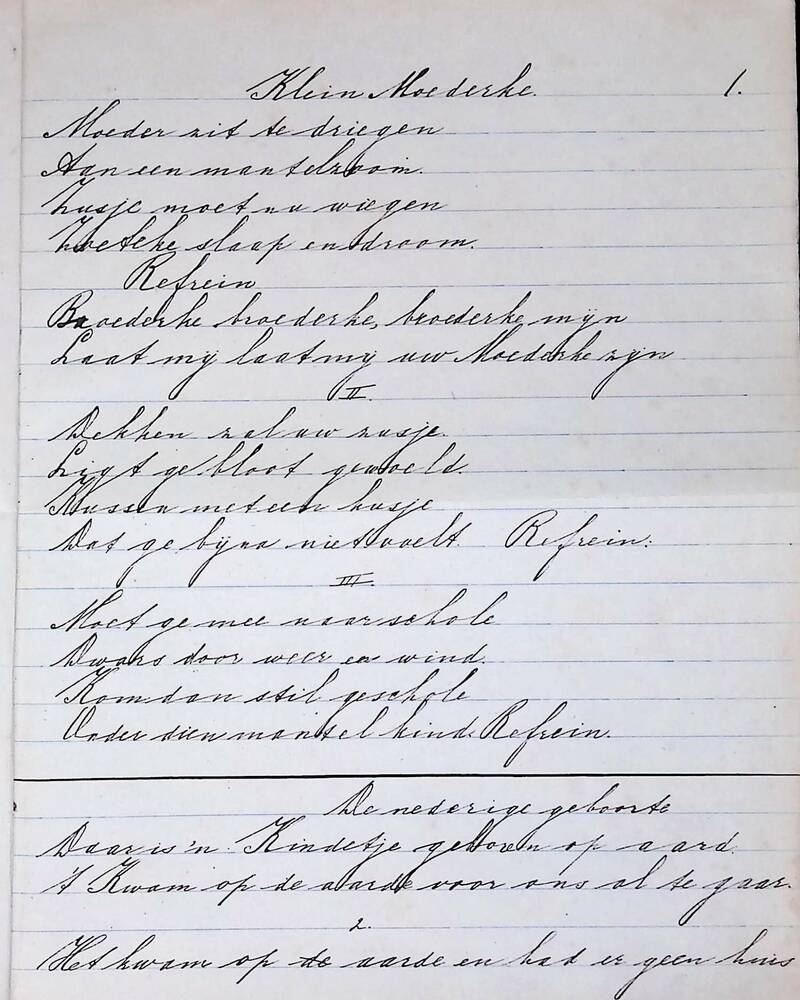 Klein Moederke. 1.
Moeder zit te driegen
Aan een mantelzoom.
Zusje moet nu wiegen
Zoetelke slaap en droom.
Refrein
Broederke broederke, broederke mijn
Laat mij laat mij uw Moederke zijn
II.
Dekken zal uw zusje.
Ligt ge bloot gewoeld.
Kussen met een kusje
Dat ge bijna niet voelt. Refrein.
III.
Moet ge mee naar schole
Dwars door weer en wind.
Kom dan stil geschole
Onder dien mantel kind. Refrein.
De nederige geboorte
Daar is 'n Kindetje geboren op aard.
't Kwam op de aarde voor ons al te gaar.
2.
Het kwam op de aarde en had er geen huis